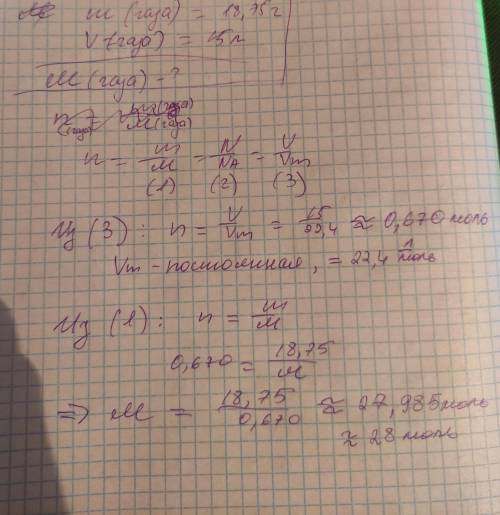 m (газа) = 18,75 г
V (газа) = 15 л
M (газа) - ?
n = m/M = N/NA = V/Vm
(1) (2) (3)
Из (3): n = V/Vm = 15/22,4 ≈ 0,670 моль
Vm - постоянная, = 22,4 л/моль
Из (1): n = m/M
0,670 = 18,75/M
=> M = 18,75/0,670 ≈ 27,985 моль
≈ 28 моль